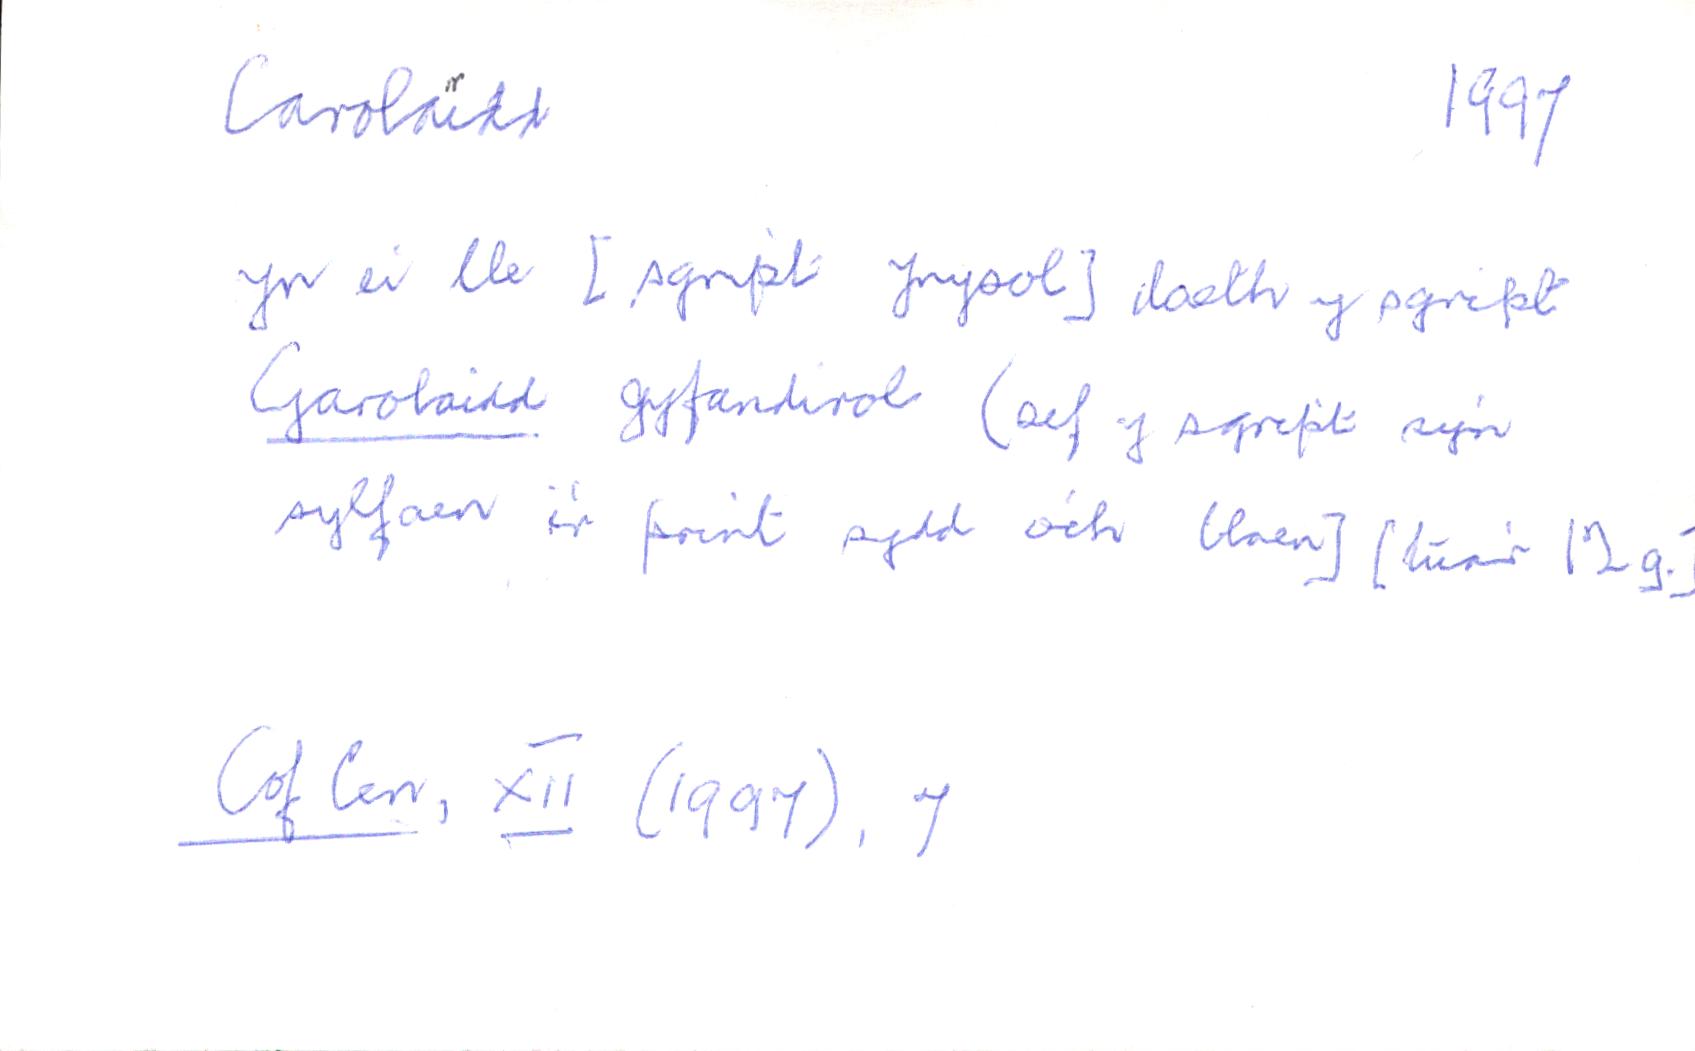 Carolaidd 1997
yn ei lle [sgript Ynysol] daeth y sgript
Garolaidd gyfandirol (sef y sgript sy'n
sylfaen i'r print sydd o'ch blaen] [tua'r 12 g.]
Cof Cen, XII (1997), 7